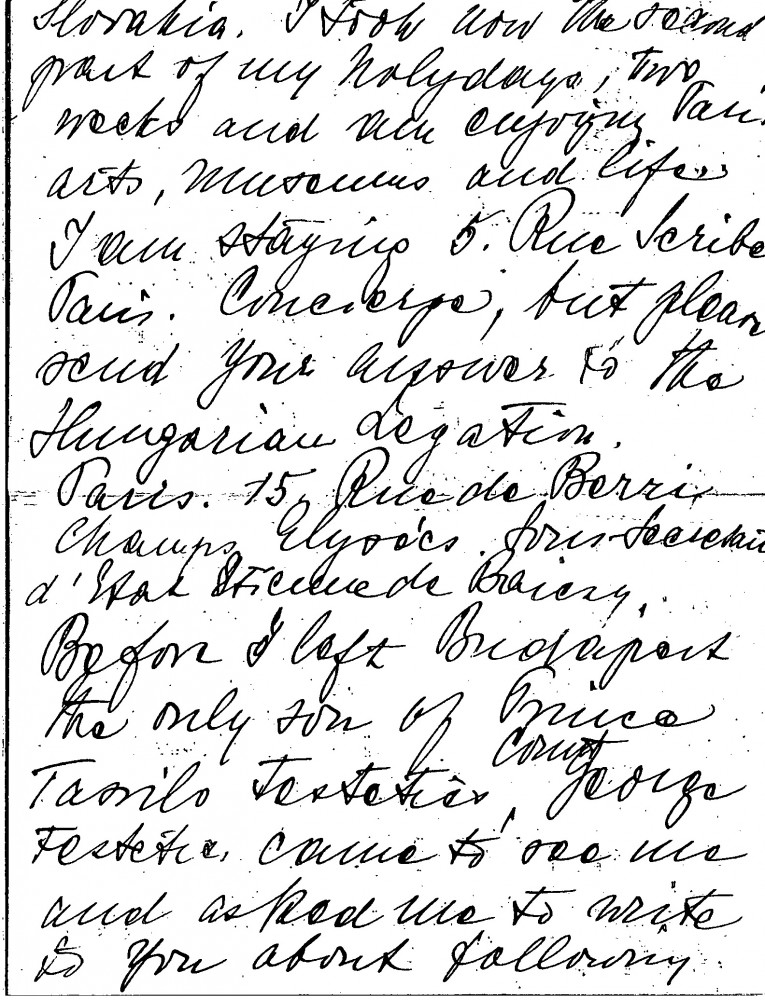 Slovakia. I took now the second
part of my holydays, two
weeks and am enjoying Paris
arts, Museums and life.
I am staying 5. Rue Scribe
Paris. Concierge, but please
send your answer to the
Hungarian Legation.
Paris. 15, Rue de Berri
Champs Elysées. Sous-Secretaire
d'Etat Etienne de
Before I left Budapest
the only son of Prince
Count
Tassilo Festetics, George
Festetics, came to see me
and asked me to write
to you about following